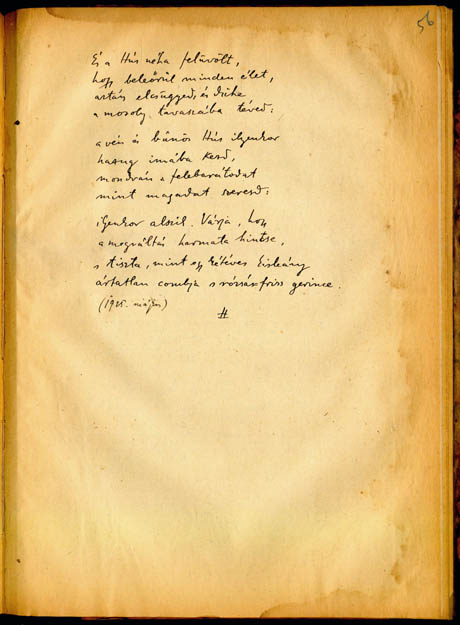 56
És a Hús néha felüvölt,
hogy beleőrül minden élet,
aztán elcsügged, és
a mosoly tavaszába téved:
a vén és bűnös Hús ilyenkor
hazug imába kezd,
mondván a felebarátodat
mint magadat szeresd:
ilyenkor alszik. Várja, hogy
a megváltás harmata hintse,
s tiszta, mint egy hétéves kisleány
ártatlan combja s rózsásfriss gerince.
(1925. május)